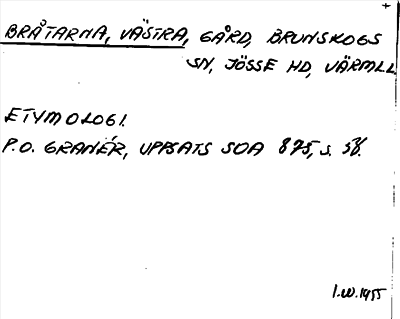 +
BRÅTARNA, VÄSTRA, GÅRD, BRUNSKOGS
SN, JÖSSE HD, VÄRML.
ETYMOLOGI.
P.O. GRANÉR, UPPSATS SOA 875, s. 58.
I.W.1955